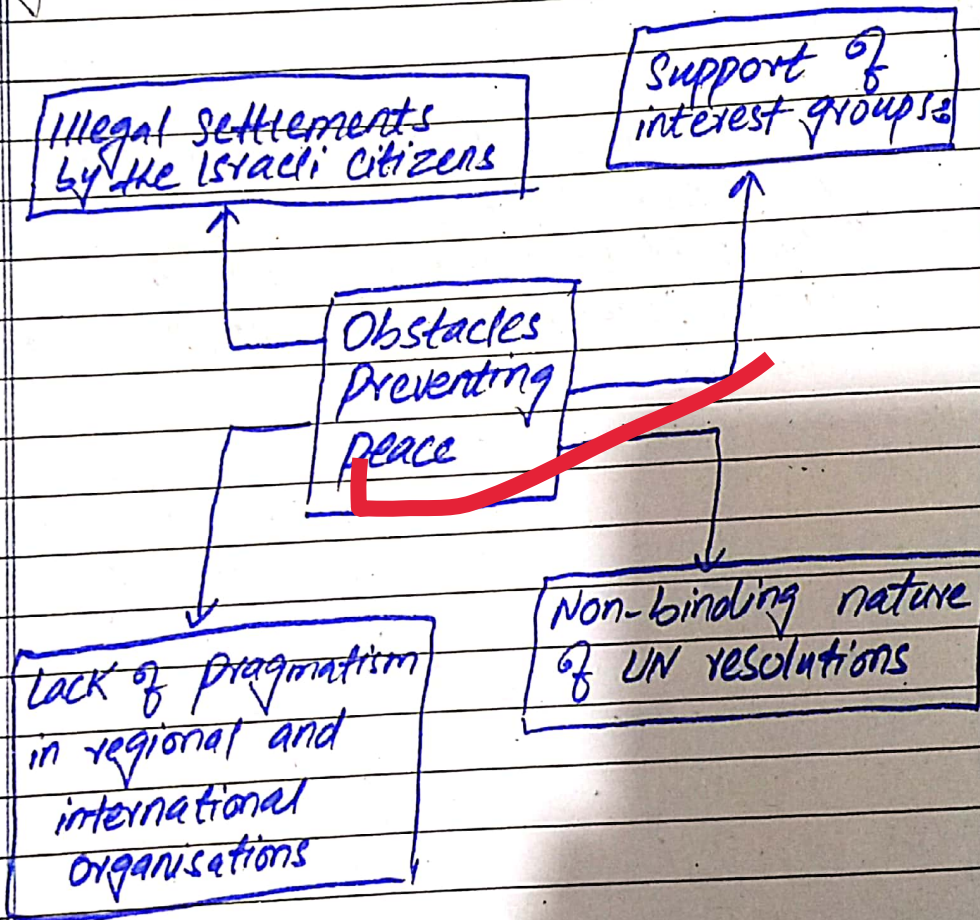 Illegal settlements
by the Israeli citizens
Support of
interest groups:
Obstacles
Preventing
peace
Lack of pragmatism
in regional and
international
organisations
Non-binding nature
of UN resolutions